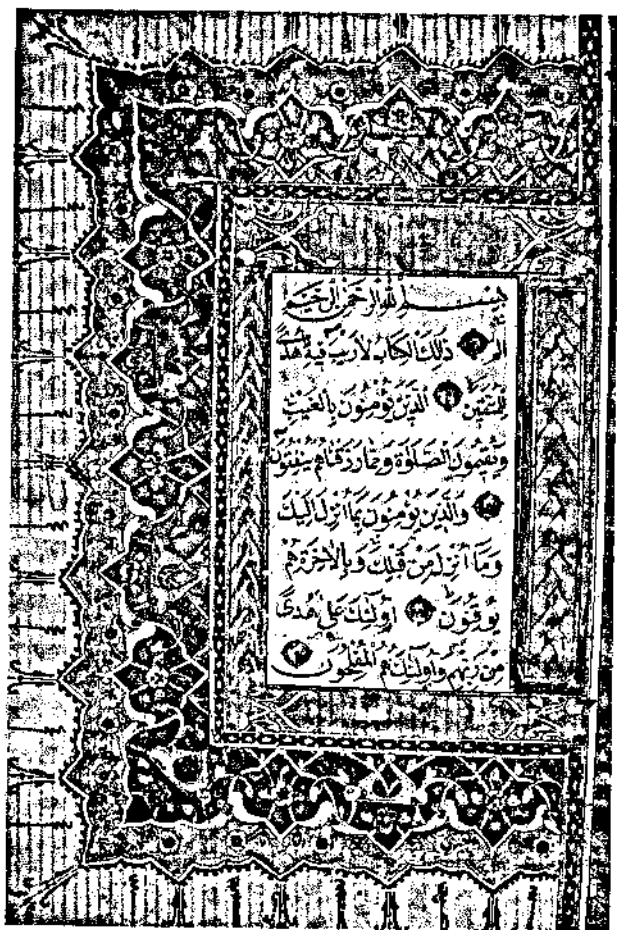 بِسْمِ اللهِ الرَّحْمٰنِ الرَّحِيمِ
الم ذَلِكَ الْكِتَابُ لَا رَيْبَ فِيهِ هُدًى
لِلْمُتَّقِينَ الَّذِينَ يُؤْمِنُونَ بِالْغَيْبِ
وَيُقِيمُونَ الصَّلٰوةَ وَمِمَّا رَزَقْنَاهُمْ يُنْفِقُونَ
وَالَّذِينَ يُؤْمِنُونَ بِمَا أُنْزِلَ إِلَيْكَ
وَمَا أُنْزِلَ مِنْ قَبْلِكَ وَبِالْآخِرَةِ هُمْ
يُوقِنُونَ أُولَٰئِكَ عَلَىٰ هُدًى
مِنْ رَبِّهِمْ وَأُولَٰئِكَ هُمُ الْمُفْلِحُونَ